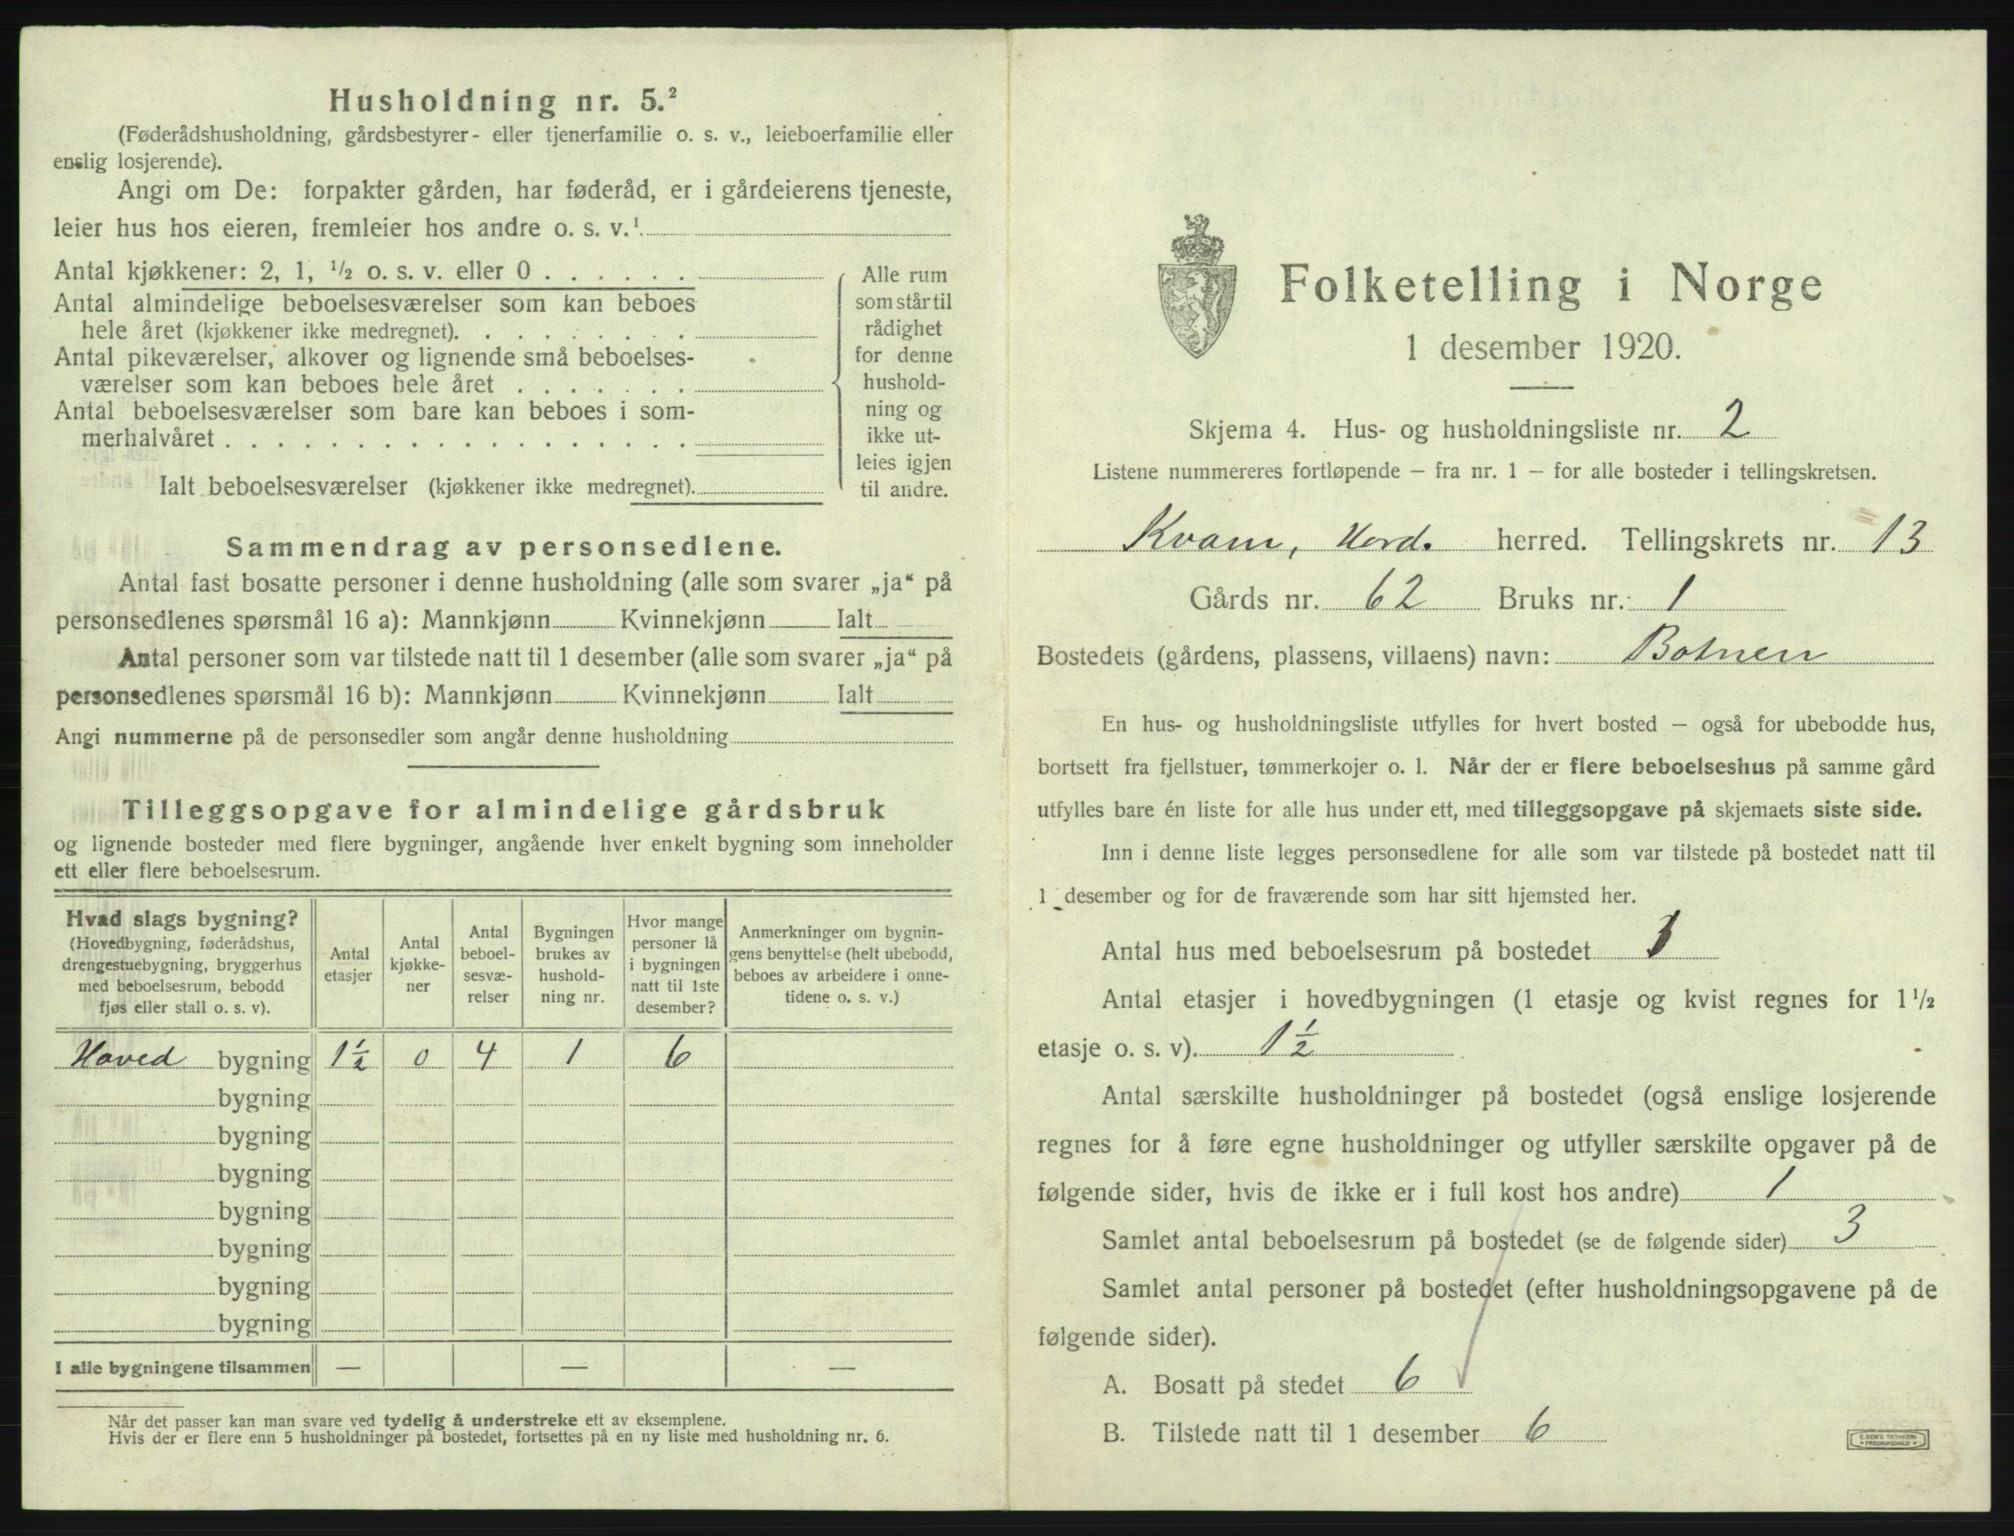 Husholdning nr. 5.²
(Føderådshusholdning, gårdsbestyrer- eller tjenerfamilie o. s. v., leieboerfamilie eller
enslig losjerende).
Angi om De: forpakter gården, har føderåd, er i gårdeierens tjeneste,
leier hus hos eieren, fremleier hos andre o. s. v.¹
Antal kjøkkener: 2, 1, ½ o. s. v. eller 0 . . . . . .
Antal almindelige beboelsesværelser som kan beboes
hele året (kjøkkener ikke medregnet). . . . . . . . .
Antal pikeværelser, alkover og lignende små beboelses-
værelser som kan beboes hele året . . . . . . .
Antal beboelsesværelser som bare kan beboes i som-
merhalvåret . . . . . . . . . . . . . . . . . .
Ialt beboelsesværelser (kjøkkener ikke medregnet).
Alle rum
som står til
rådighet
for denne
hushold-
ning og
ikke ut-
leies igjen
til andre.
Sammendrag av personsedlene.
Antal fast bosatte personer i denne husholdning (alle som svarer „ja“ på
personsedlenes spørsmål 16 a): Mannkjønn Kvinnekjønn Ialt
Antal personer som var tilstede natt til 1 desember (alle som svarer „ja“ på
personsedlenes spørsmål 16 b): Mannkjønn Kvinnekjønn Ialt
Angi nummerne på de personsedler som angår denne husholdning
Tilleggsopgave for almindelige gårdsbruk
og lignende bosteder med flere bygninger, angående hver enkelt bygning som inneholder
ett eller flere beboelsesrum.
Hvad slags bygning?
(Hovedbygning, føderådshus,
drengestuebygning, bryggerhus
med beboelsesrum, bebodd
fjøs eller stall o. s. v).
Antal
etasjer
Antal
kjøkke-
ner
Antal
beboel-
sesvæ-
relser
Bygningen
brukes av
hushold-
ning nr.
Hvor mange
personer lå
i bygningen
natt til 1ste
desember?
Anmerkninger om bygnin-
gens benyttelse (helt ubebodd,
beboes av arbeidere i onne-
tidene o. s. v.)
Hoved bygning 1½ 0 4 1 6
bygning
bygning
bygning
bygning
bygning
bygning
bygning
I alle bygningene tilsammen — — —
Når det passer kan man svare ved tydelig å understreke ett av eksemplene.
Hvis der er flere enn 5 husholdninger på bostedet, fortsettes på en ny liste med husholdning nr. 6.
Folketelling i Norge
1 desember 1920.
Skjema 4. Hus- og husholdningsliste nr. 2
Listene nummereres fortløpende – fra nr. 1 – for alle bosteder i tellingskretsen.
Kvam, Hord. herred. Tellingskrets nr. 13
Gårds nr. 62 Bruks nr. 1
Bostedets (gårdens, plassens, villaens) navn: Botnen
En hus- og husholdningsliste utfylles for hvert bosted – også for ubebodde hus,
bortsett fra fjellstuer, tømmerkojer o. l. Når der er flere beboelseshus på samme gård
utfylles bare én liste for alle hus under ett, med tilleggsopgave på skjemaets siste side.
Inn i denne liste legges personsedlene for alle som var tilstede på bostedet natt til
1 desember og for de fraværende som har sitt hjemsted her.
Antal hus med beboelsesrum på bostedet 1
Antal etasjer i hovedbygningen (1 etasje og kvist regnes for 1½
etasje o. s. v). 1½
Antal særskilte husholdninger på bostedet (også enslige losjerende
regnes for å føre egne husholdninger og utfyller særskilte opgaver på de
følgende sider, hvis de ikke er i full kost hos andre) 1
Samlet antal beboelsesrum på bostedet (se de følgende sider) 3
Samlet antal personer på bostedet (efter husholdningsopgavene på de
følgende sider).
A. Bosatt på stedet 6
B. Tilstede natt til 1 desember 6